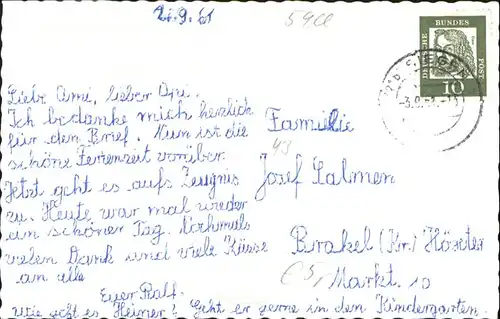 2.9.61
59Cl
DEUTSCHE BUNDESPOST
10
SIEGEN
Liebe Omi, lieber Opi.
Ich bedanke mich herzlich
für dem Brief. Nun ist die
schöne Ferienzeit vorüber.
Jetzt geht es aufs Zeugnis
zu. Heute war mal wieder
ein schöner Tag. Nochmals
vielen Dank und viele Küsse
an alle
Euer Ralf.
Wie geht es Heiner? Geht er gerne in den Kindergarten.
Familie
43
Josef Salmen
Brakel (Kr.) Höxter
Markt. 10